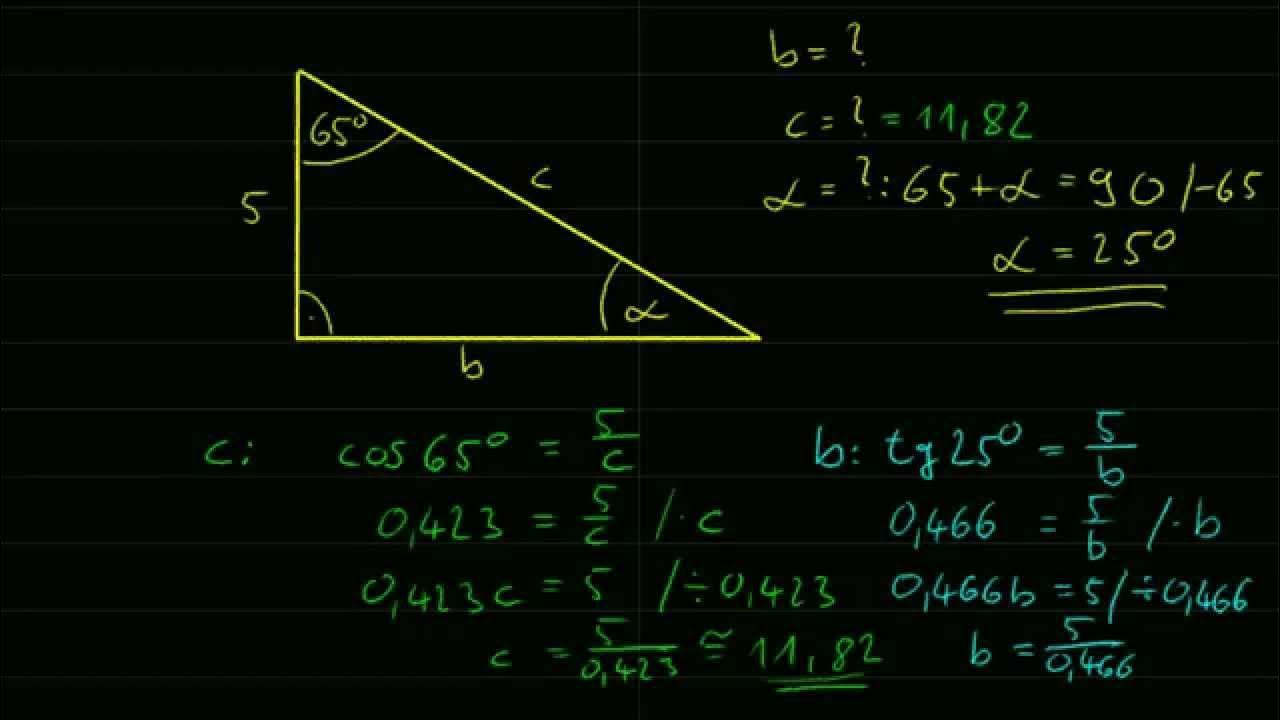 b = ?
c = ? = 11,82
α = ? : 65 + α = 90 /-65
α = 25°
65°
c
5
α
b
c: cos 65° = 5/c
0,423 = 5/c / · c
0,423c = 5 / ÷ 0,423
c = 5/0,423 ≅ 11,82
b: tg 25° = 5/b
0,466 = 5/b / · b
0,466b = 5 / ÷ 0,466
b = 5/0,466